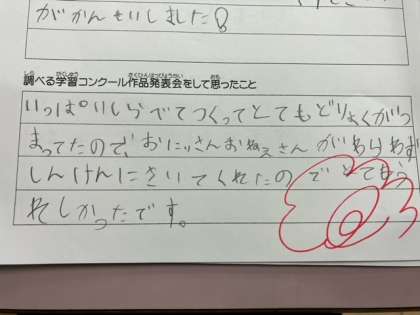 がかんせいしました!
調べる学習コンクール作品発表会をして思ったこと
いっぱいしらべてつくってとてもどりょくがつ
まってたので、おにいさんおねえさんがわらわず
しんけんにきいてくれたのでとてもう
れしかったです。